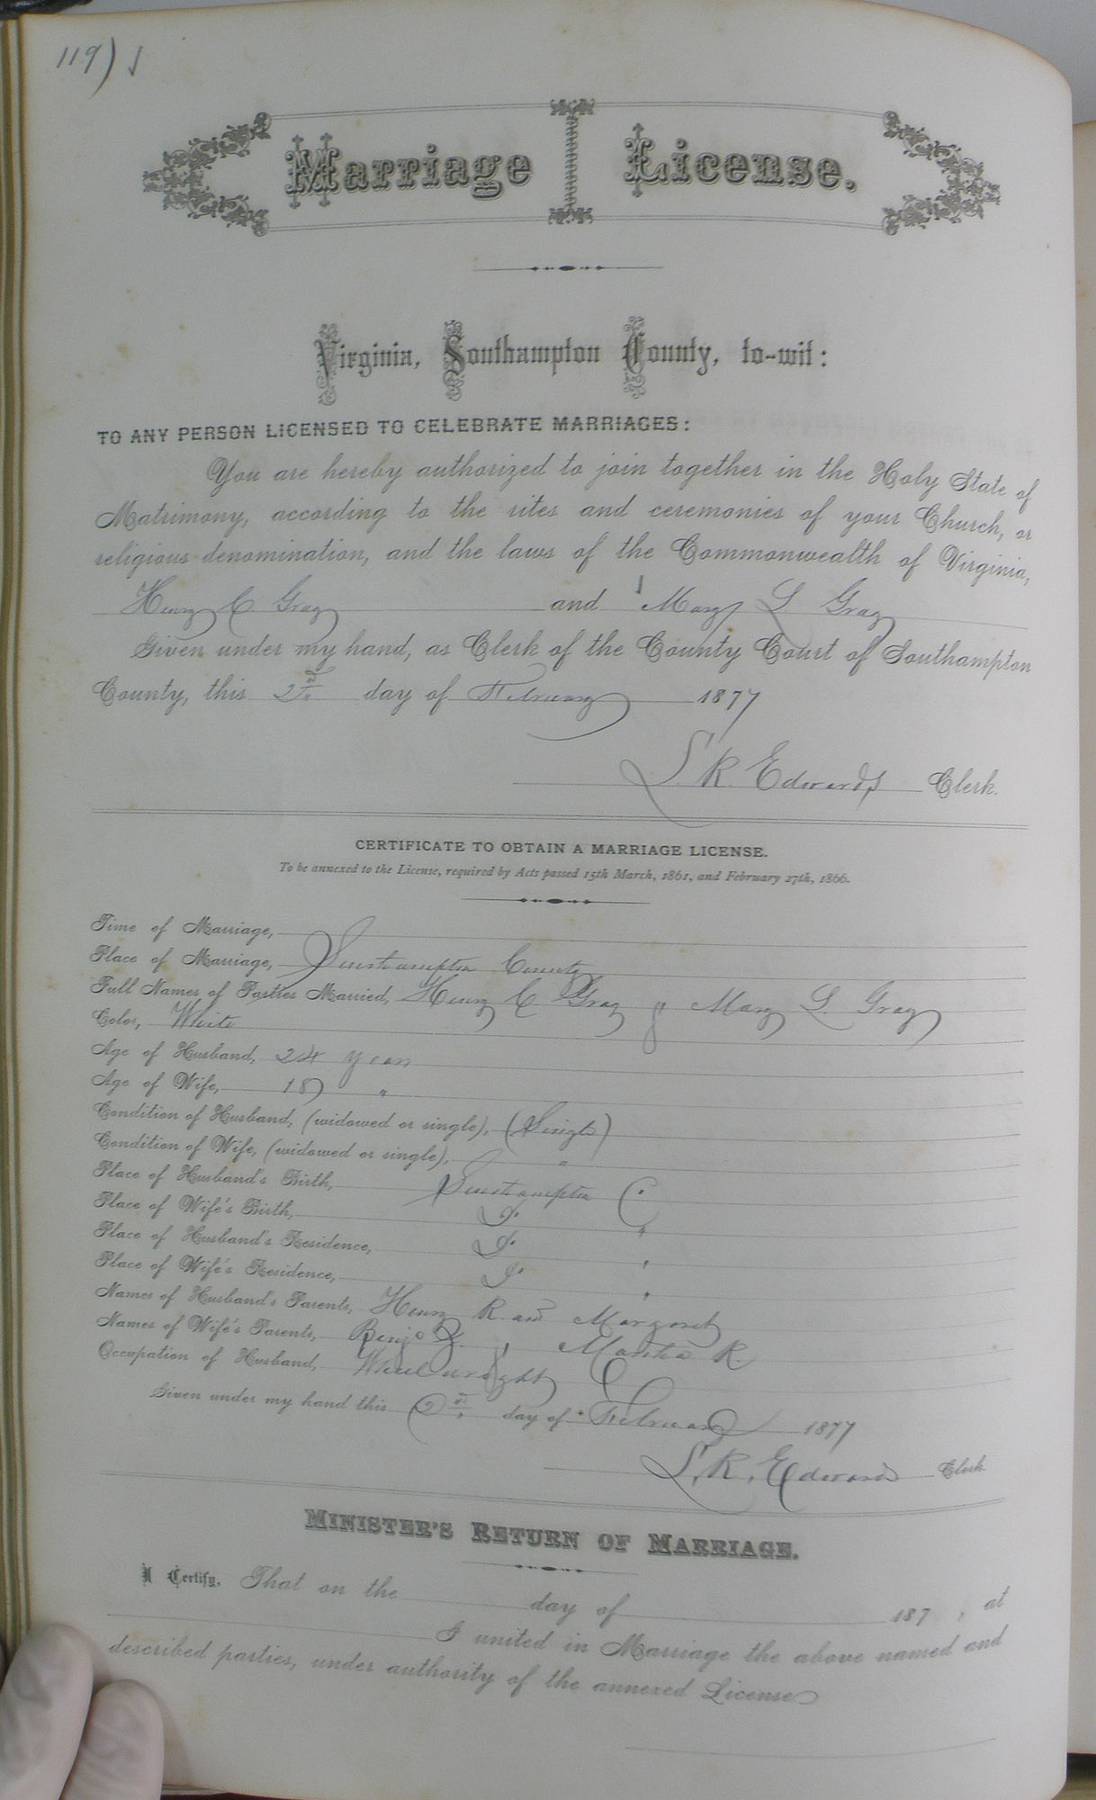 119)
Marriage License.
Virginia, Southampton County, to-wit:
TO ANY PERSON LICENSED TO CELEBRATE MARRIAGES:
You are hereby authorized to join together in the Holy State of
Matrimony, according to the rites and ceremonies of your Church, or
religious denomination, and the laws of the Commonwealth of Virginia,
Henry C Gray and Mary L Gray
Given under my hand, as Clerk of the County Court of Southampton
County, this 2nd day of February 1877
L. R. Edwards Clerk.
CERTIFICATE TO OBTAIN A MARRIAGE LICENSE.
To be annexed to the License, required by Acts passed 15th March, 1861, and February 27th, 1866.
Time of Marriage,
Place of Marriage, Southampton County
Full Names of Parties Married, Henry C Gray & Mary L. Gray
Color, White
Age of Husband, 24 years
Age of Wife, 18 "
Condition of Husband, (widowed or single), (Single)
Condition of Wife, (widowed or single), "
Place of Husband's Birth, Southampton C
Place of Wife's Birth, Do "
Place of Husband's Residence, Do "
Place of Wife's Residence, Do "
Names of Husband's Parents, Henry R. and Margaret
Names of Wife's Parents, Benj & Martha R.
Occupation of Husband, Wheelwright
Given under my hand this 2nd day of February 1877
L. R. Edwards Clerk
MINISTER'S RETURN OF MARRIAGE.
I Certify, That on the day of 187 , at
I united in Marriage the above named and
described parties, under authority of the annexed License